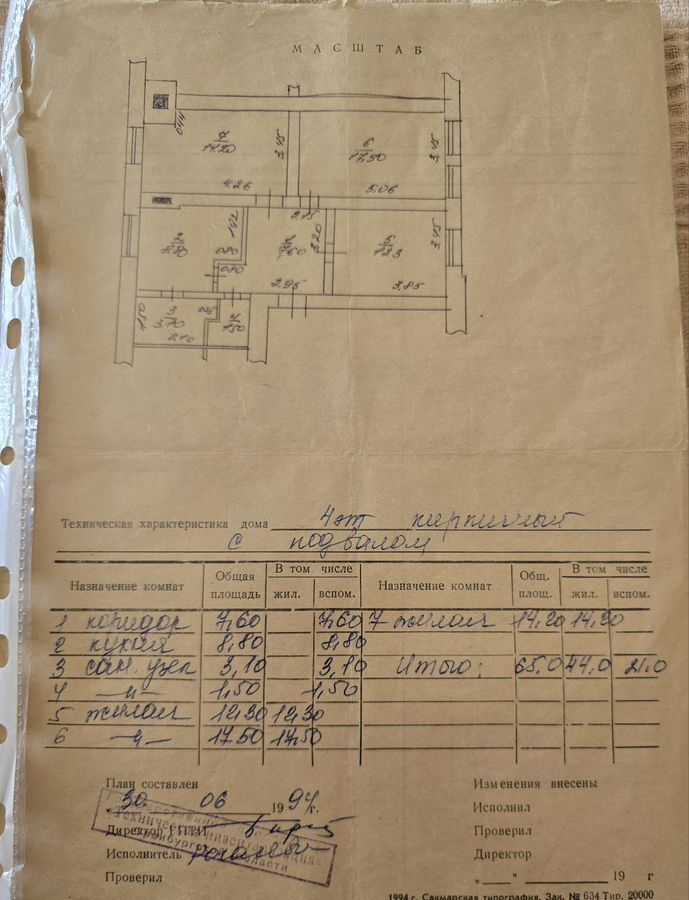 МАСШТАБ
0,44
7
14,20
3,45
6
17,50
3,45
4.26
5,06
2
8,80
1,92
0,80
0,80
7,60
3,20
2,95
5
12,3
3,45
3,85
1,50
3
3,10
2,10
4
1,50
Техническая характеристика дома 4 эт кирпичный
с подвалом
Назначение комнат Общая площадь В том числе жил. вспом. Назначение комнат Общ. площ. В том числе жил. вспом.
1 коридор 7,60 7,60 7 жилая 14,20 14,20
2 кухня 8,80 8,80
3 сан. узел 3,10 3,10 Итого: 65,0 44,0 21.0
4 —"— 1,50 1,50
5 жилая 12,30 12,30
6 —"— 17,50 17,50
План составлен Изменения внесены
"30" 06 1994г. Исполнил
Директор Проверил
Исполнитель Директор
Проверил "__" ________ 19 г
1994 г. Сакмарская типография. Зак. № 634 Тир. 20000